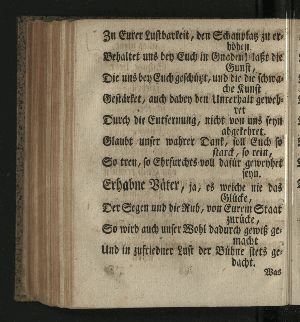 Zu Eurer Lustbarkeit, den Schauplatz zu er-
höhen.
Behaltet uns bey Euch in Gnaden! laßt die
Gunst,
Die uns bey Euch geschützt, und die die schwa-
che Kunst
Gestärket, auch dabey den Unterhalt geweh-
ret
Durch die Entfernung, nicht von uns seyn
abgekehret.
Glaubt unser wahrer Dank, soll Euch so
starck, so rein,
So treu, so Ehrfurchts voll dafür geweyhet
seyn.
Erhabne Väter, ja, es weiche nie das
Glücke,
Der Segen und die Ruh, von Eurem Staat
zurücke,
So wird auch unser Wohl dadurch gewiß ge-
macht
Und in zufriedner Lust der Bühne stets ge-
dacht.
Was